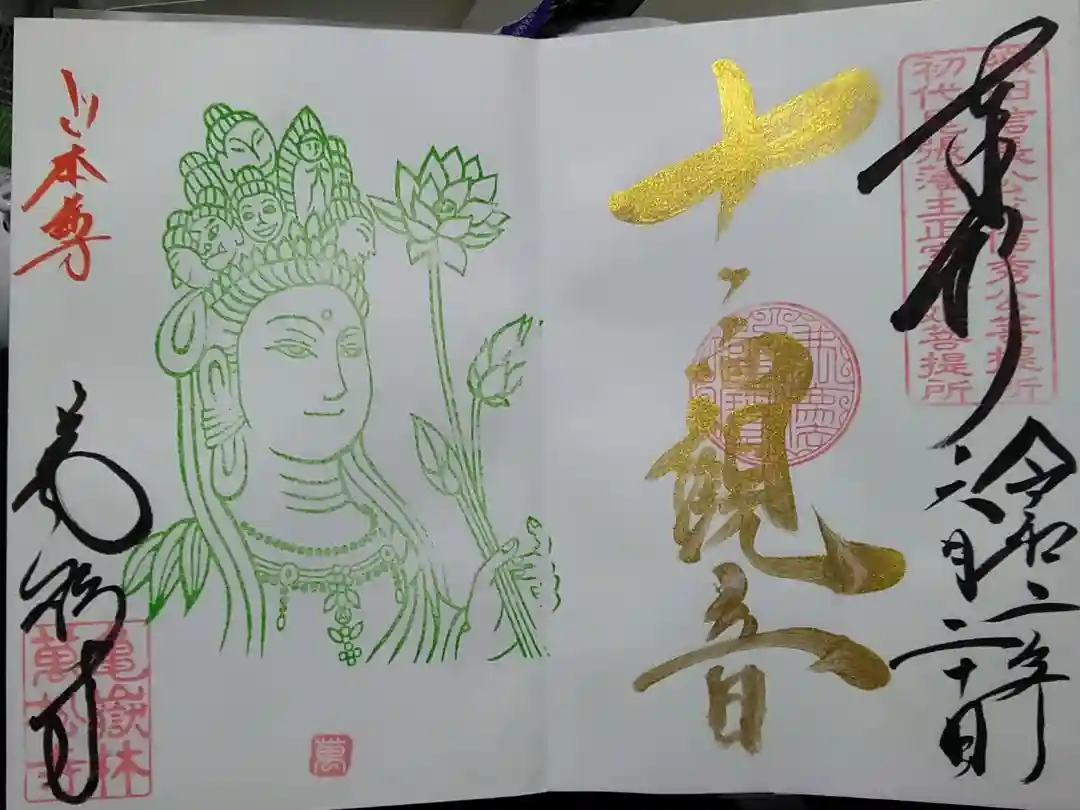 奉拝
織田信長公父信秀公菩提所
初代尾張藩主正室春姫菩提所
令和二年
六月二十日
十一面観音
御本尊
萬松寺
亀嶽林
萬松寺
萬